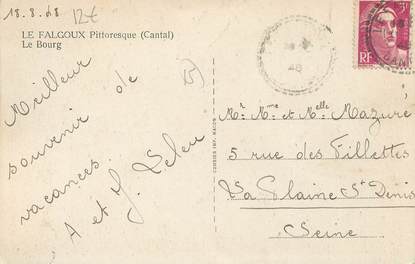 18.8.48
12€
LE FALGOUX Pittoresque (Cantal)
Le Bourg
Meilleur
souvenir de
vacances.
A et J.
COMBIER IMP. MACON
3F
RF
48
Mr Mme et Melle Mazure
5 rue des Fillettes
La Plaine St Denis
Seine